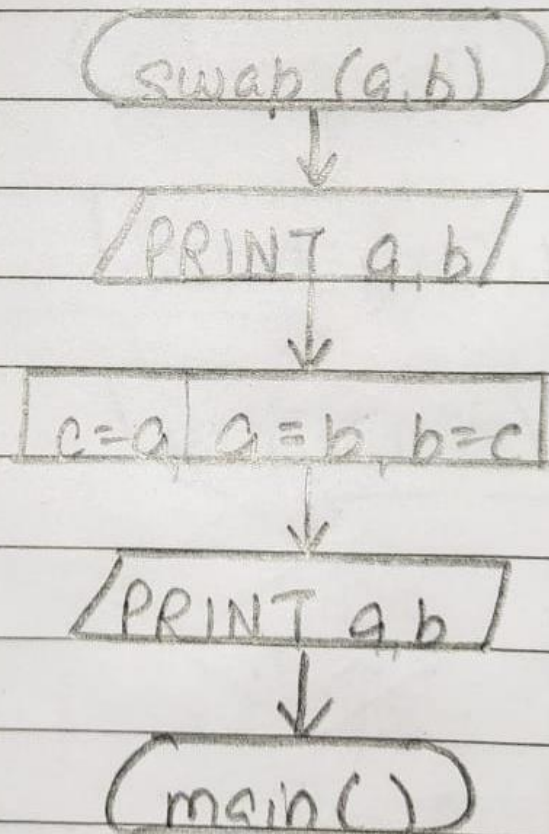 swap (a,b)
PRINT a,b
c=a, a=b, b=c
PRINT a,b
main()